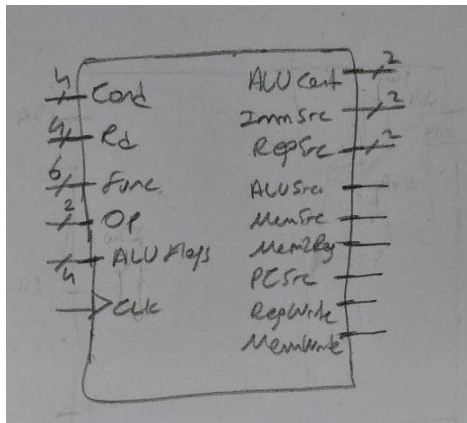 4 Cond
4 Rd
6 Func
2 Op
4 ALU Flags
CLK
ALU Cont 2
ImmSrc 2
RegSrc 2
ALUSrc
MemSrc
Mem2Reg
PCSrc
RegWrite
MemWrite